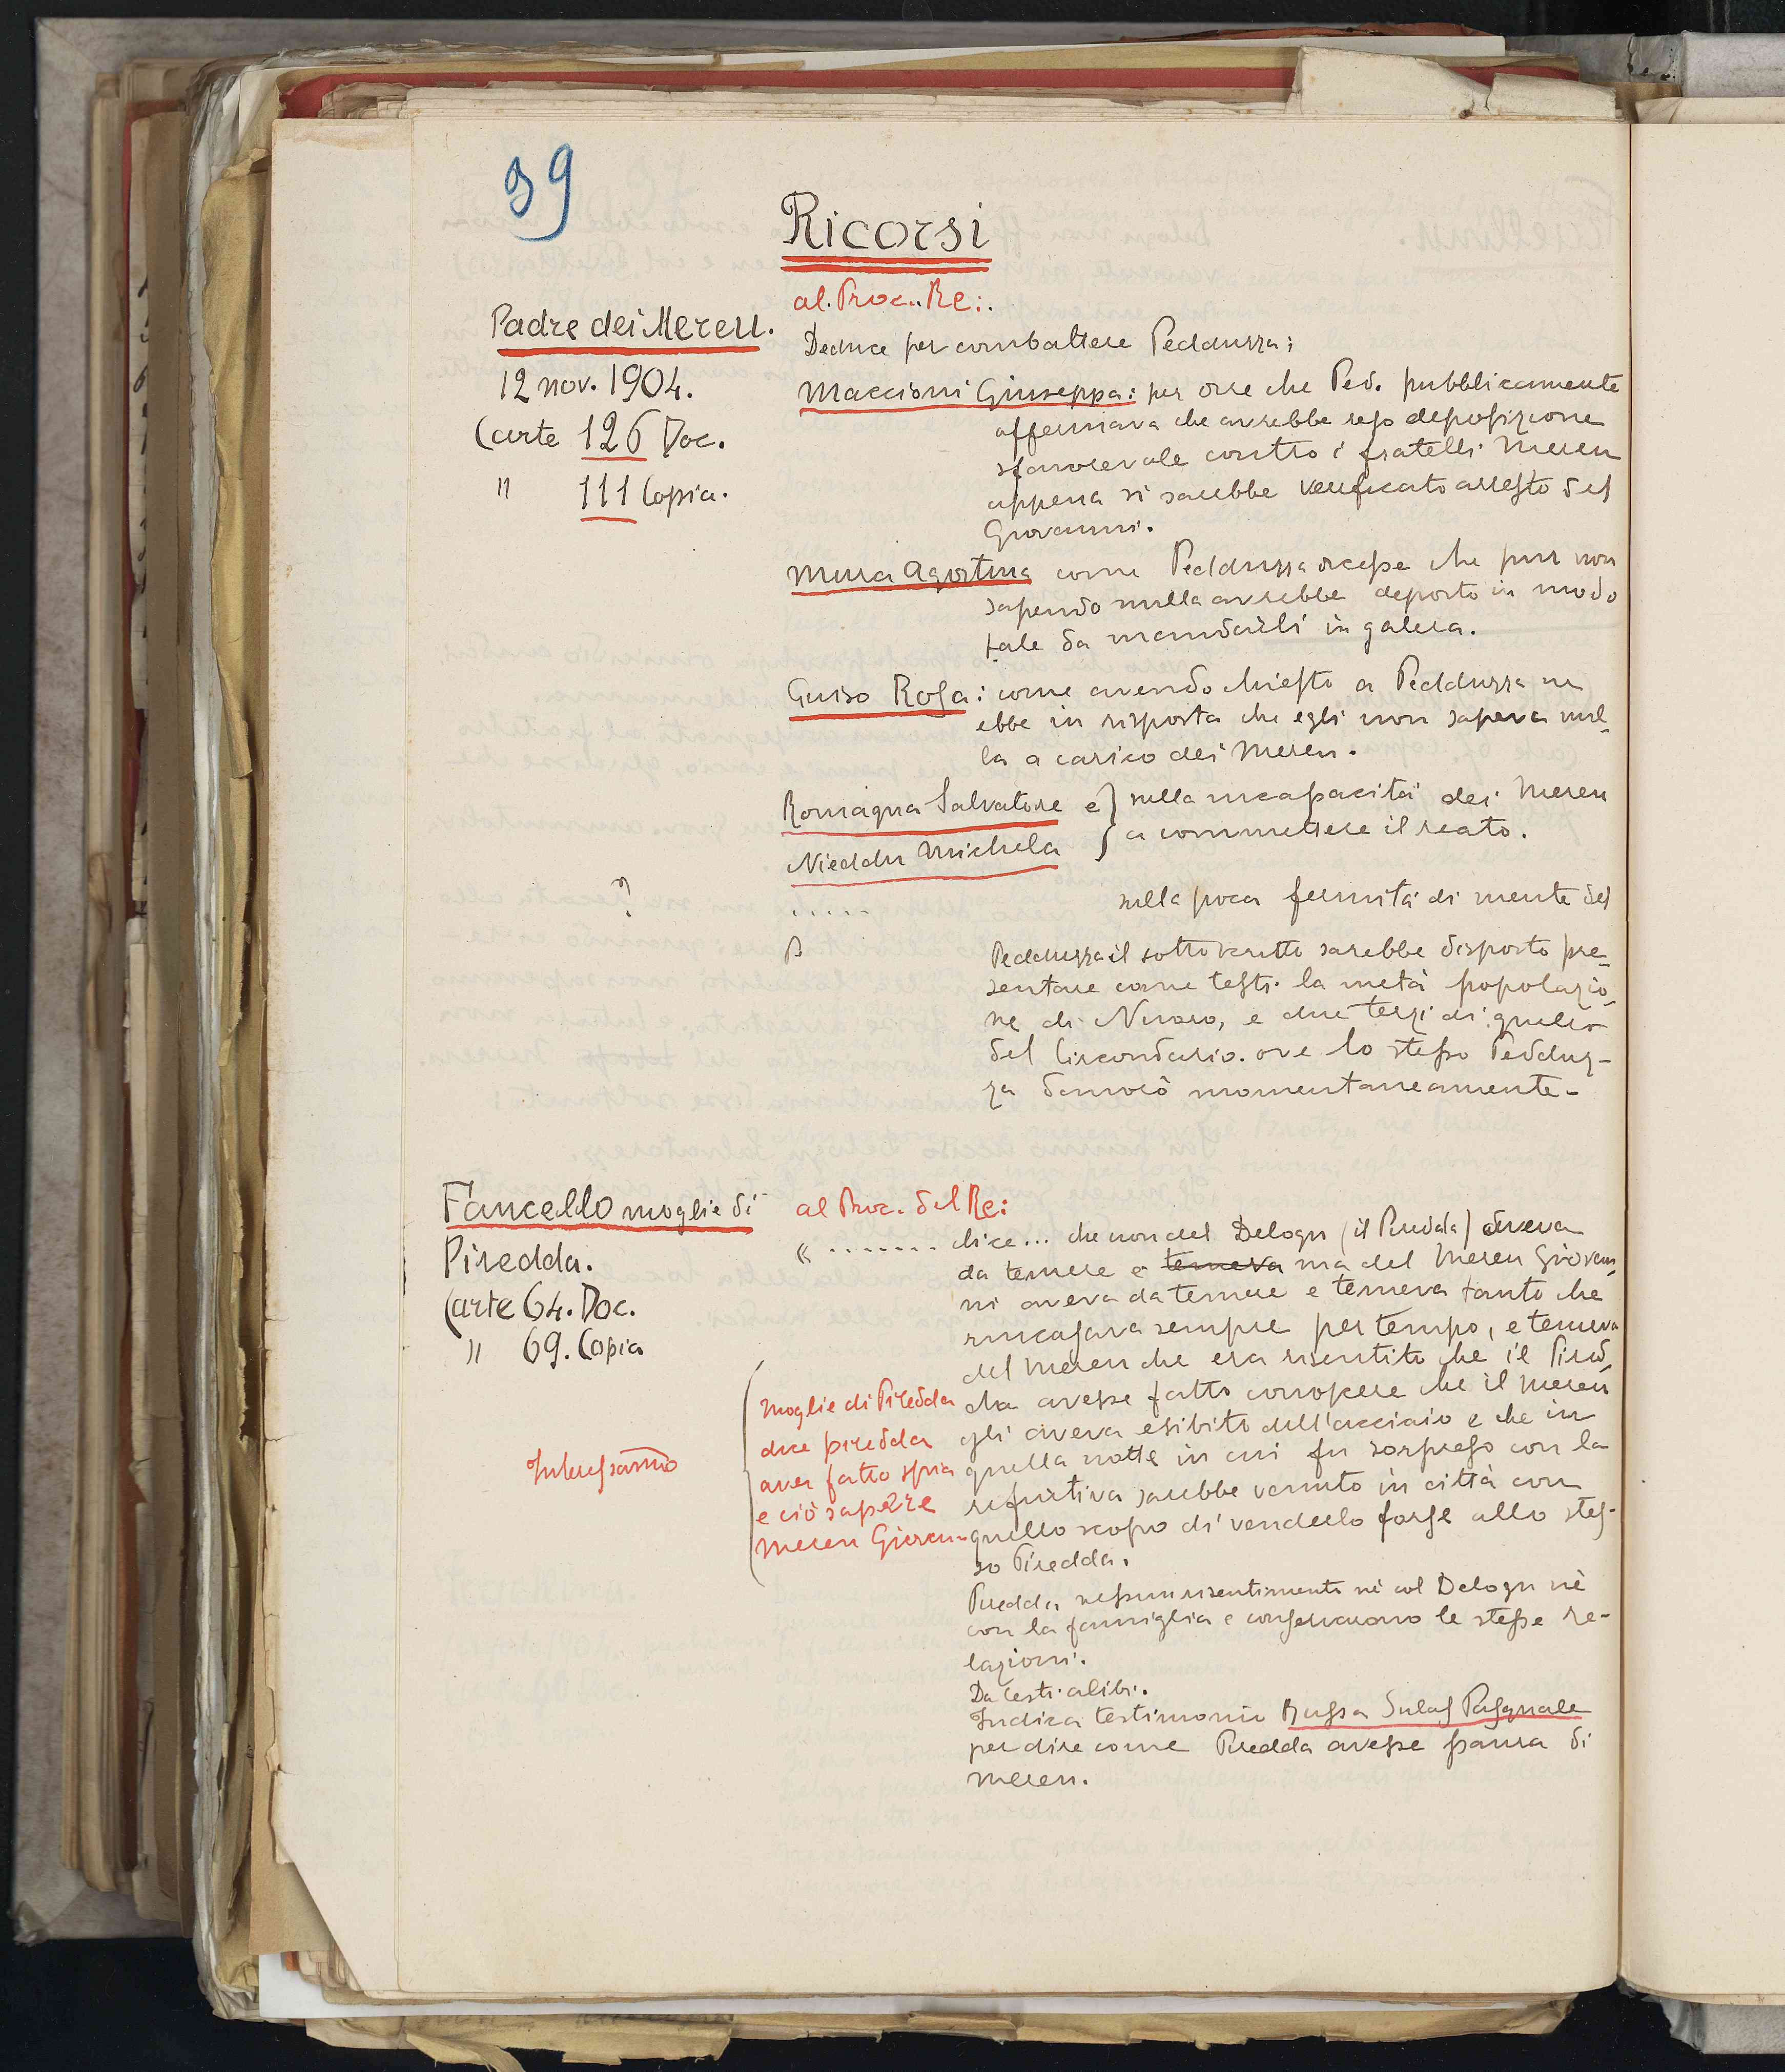 39
Ricorsi
al. Proc.. Re:.
Padre dei Mereu.
12 nov. 1904.
Carte 126 Doc.
" 111 Copia.
Deduce per combattere Pedduzza:
Maccioni Giuseppa: per dire che Ped. pubblicamente
affermava che avrebbe reso deposizione
sfavorevole contro i fratelli Mereu
appena si sarebbe verificato arresto del
Giovanni.
Mura Agostina come Pedduzza dicesse che pur non
sapendo nulla avrebbe deposto in modo
tale da mandarli in galera.
Guiso Rosa: come avendo chiesto a Pedduzza ne
ebbe in risposta che egli non sapeva nul-
la a carico dei Mereu.
Romagna Salvatore e } sulla incapacità dei Mereu
Nieddu Michela } a commettere il reato.
? ..... sulla poca fermità di mente del
Pedduzza il sottoscritto sarebbe disposto pre-
sentare come testi. la metà popolazio-
ne di Nuoro, e due terzi di quello
del Circondario. ove lo stesso Pedduz-
za dimorò momentaneamente-
Fancello moglie di
Piredda.
Carte 64. Doc.
" 69. Copia
al Proc. del Re:
« ....... dice... che non del Delogu (il Piredda) aveva
da temere e temeva ma del Mereu Giovan-
ni aveva da temere e temeva tanto che
rincasava sempre per tempo, e temeva
del Mereu che era risentito che il Pired-
da avesse fatto conoscere che il Mereu
gli aveva esibito dell'acciaio e che in
quella notte in cui fu sorpreso con la
refurtiva sarebbe venuto in città con
quello scopo di venderlo forse allo stes-
so Piredda.
Interessantissimo
Moglie di Piredda
dice piredda
aver fatto spia
e ciò sapere
Mereu Giovanni
Piredda nessun risentimento nè col Delogu nè
con la famiglia e conservarono le stesse re-
lazioni.
Da testi alibi.
Indica testimonio Bussa Sulas Pasquale
per dire come Piredda avesse paura di
Mereu.